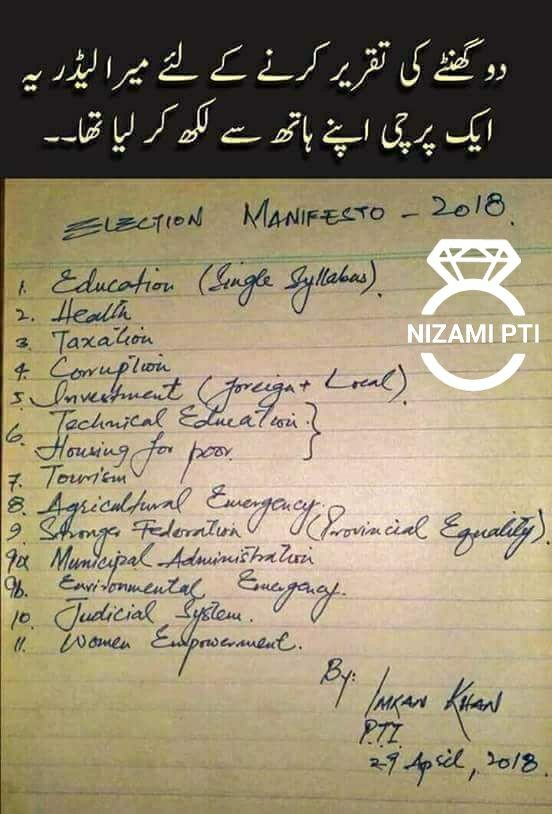 دو گھنٹے کی تقریر کرنے کے لئے میرا لیڈر یہ
ایک پرچی اپنے ہاتھ سے لکھ کر لیا تھا۔۔
ELECTION MANIFESTO - 2018.
NIZAMI PTI
1. Education (Single Syllabus).
2. Health
3. Taxation
4. Corruption
5. Investment (foreign + Local).
6. Technical Education }
Housing for poor.
7. Tourism
8. Agricultural Emergency.
9. Stronger Federation (Provincial Equality).
9a Municipal Administration
9b. Environmental Emergency.
10. Judicial System.
11. Women Empowerment.
By: IMRAN KHAN
P.T.I.
29 April, 2018.